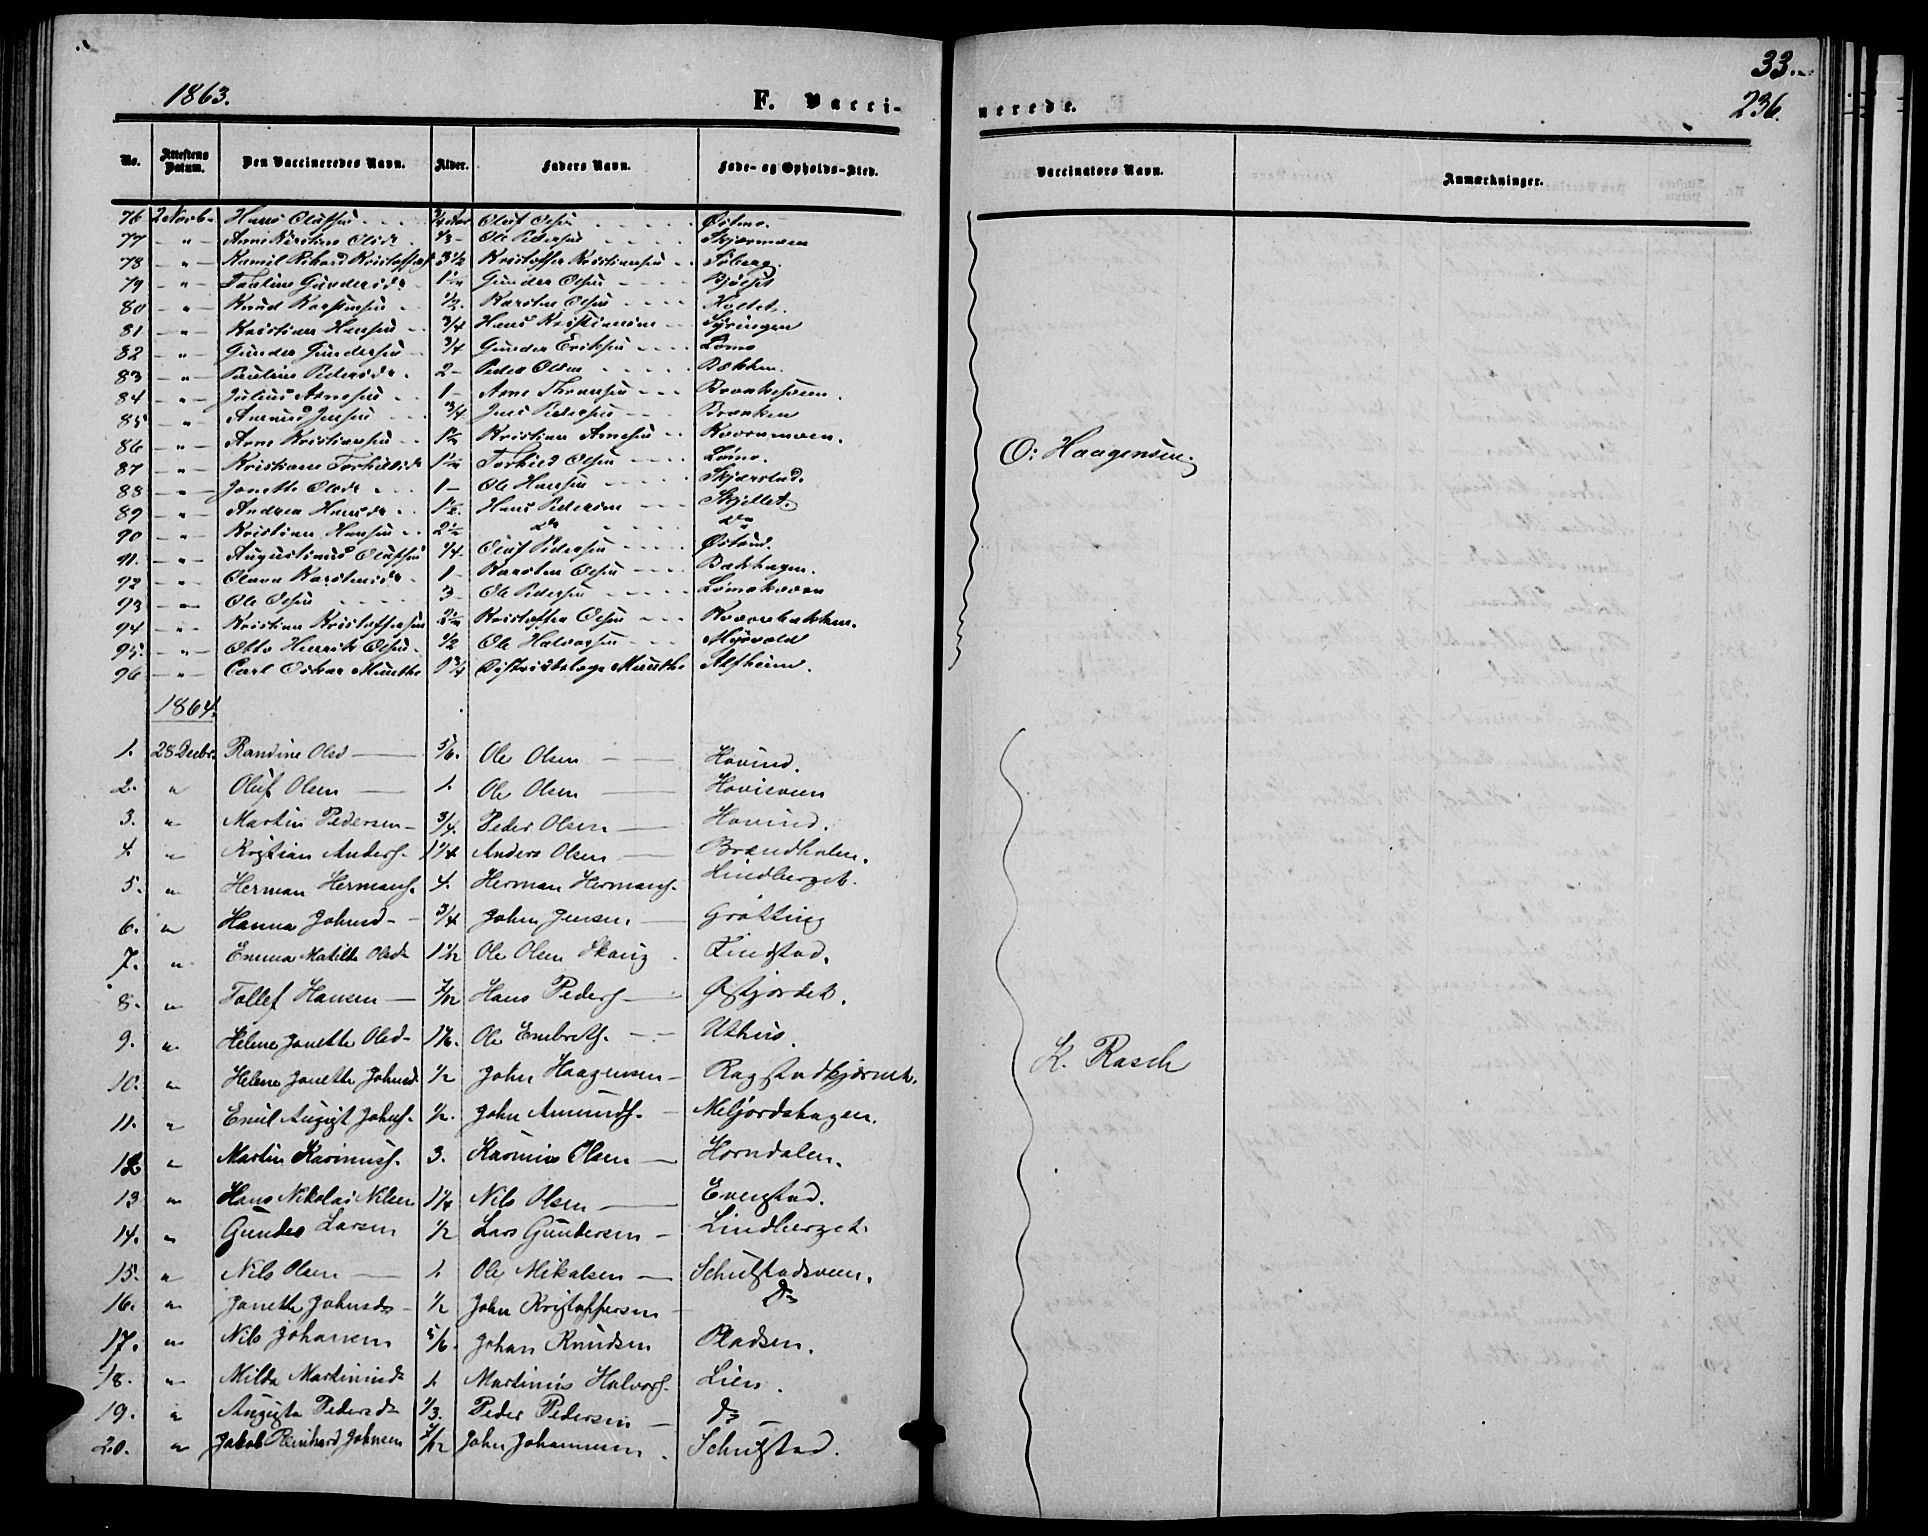 33.
1863. F. Vacci- nerede. 236.
No. Attestens Datum. Den Vaccineredes Navn. Alder. Faders Navn. Føde- og Opholds-Sted. Vaccinators Navn. Anmærkninger.
76 2 Novb. Hans Olufsen 3/4 Aar Oluf Olsen Østmo.
77 " Anne Kirstine Olsdr. 1/3 Ole Pedersen Skjærmoen
78 " Kamil Rikard Kristoffers. 3 1/2 Kristoffer Kristiansen Søberg.
79 " Pauline Gundersdr. 1 1/2 Gunder Olsen
80 " Knud Karstensen 1/2. Karsten Olsen Holtet.
81 " Kristian Hansen 3/4 Hans Kristiansen Syringen
82 " Gunder Gundersen 3/4 Gunder Eriksen Lømo
83 " Pauline Pedersdr. 2 Peder Olsen Bækken.
84 " Julius Arnesen 1 Arne Thomsen
85 " Amund Jensen 3/4 Jens Pedersen Braaten
86 " Arne Kristiansen 1 1/2 Kristian Arnesen Kværnmoen.
87 " Kristiane Torkilsdr 1 1/2 Torkild Olsen Lømo.
88 " Jonette Olsdr. 1 Ole Hansen Skjærstad.
89 " Andrea Hansdr. 1 1/2. Hans Pedersen Skjellet.
90 " Kristian Hansen 2 1/2 do do
91. " Augustinus Olufsen 1/4 Oluf Pedersen Østend.
92 " Olava Karstensdr. 1 Karsten Olsen Bækhagen.
93 " Ole Olsen 3 Ole Pedersen Lømokværn
94 " Kristian Kristoffersen 2 1/2 Kristoffer Olsen Kværnbakken.
95. " Otto Henrik Olsen 1/2 Ole Halvorsen Myrvold
96 " Carl Oskar Munthe 1 3/4 Distriktslæge Munthe Alfheim.
O: Haagensen.
1864.
1. 28 Decbr. Randine Olsd 5/6. Ole Olsen Hovind.
2. " Oluf Olsen 1. Ole Olsen Hovieveen
3. " Martin Pedersen 3/4. Peder Olsen Hovind.
4. " Kristian Anders. 1 1/4 Anders Olsen Brændholen.
5. " Herman Hermans. 4. Herman Hermans. Lindberget.
6. " Hanna Johnsd 3/4 John Jensen Grøtting
7. " Emma Matilde Olsdr 1 1/2 Ole Olsen Skaug Findstad.
8. " Tollef Hansen 7/12 Hans Peders. Østjordet.
9. " Helene Jonette Olsd 1 1/6. Ole Embrets. Uthus.
10. " Helene Jonette Johnsd. 1/2 John Haagensen Ragstadkjærnet.
11. " Emil August Johns. 1/2. John Amunds. Meljordshagen.
12 " Martin Karinus. 3. Karinus Olsen Horndalen.
13 " Hans Nikolai Nilsen 1 1/4 Nils Olsen Evenstad.
14. " Gunder Larsen 1/2 Lars Gundersen Lindberget.
15. " Nils Olsen 1. Ole Mikalsen Schulstadsveen.
16. " Jonette Johnsdr 1/2 John Kristoffersen Do
17. " Nils Johansen 5/6. Johan Knudsen Pladsen.
18. " Milda Martinusdr 1. Martinus Halvors. Lien.
19. " Augusta Pedersdr 1/3. Peder Pedersen do
20. " Jakob Reinhard Johnsen 7/12 John Johannesen. Schulstad.
K. Rasch